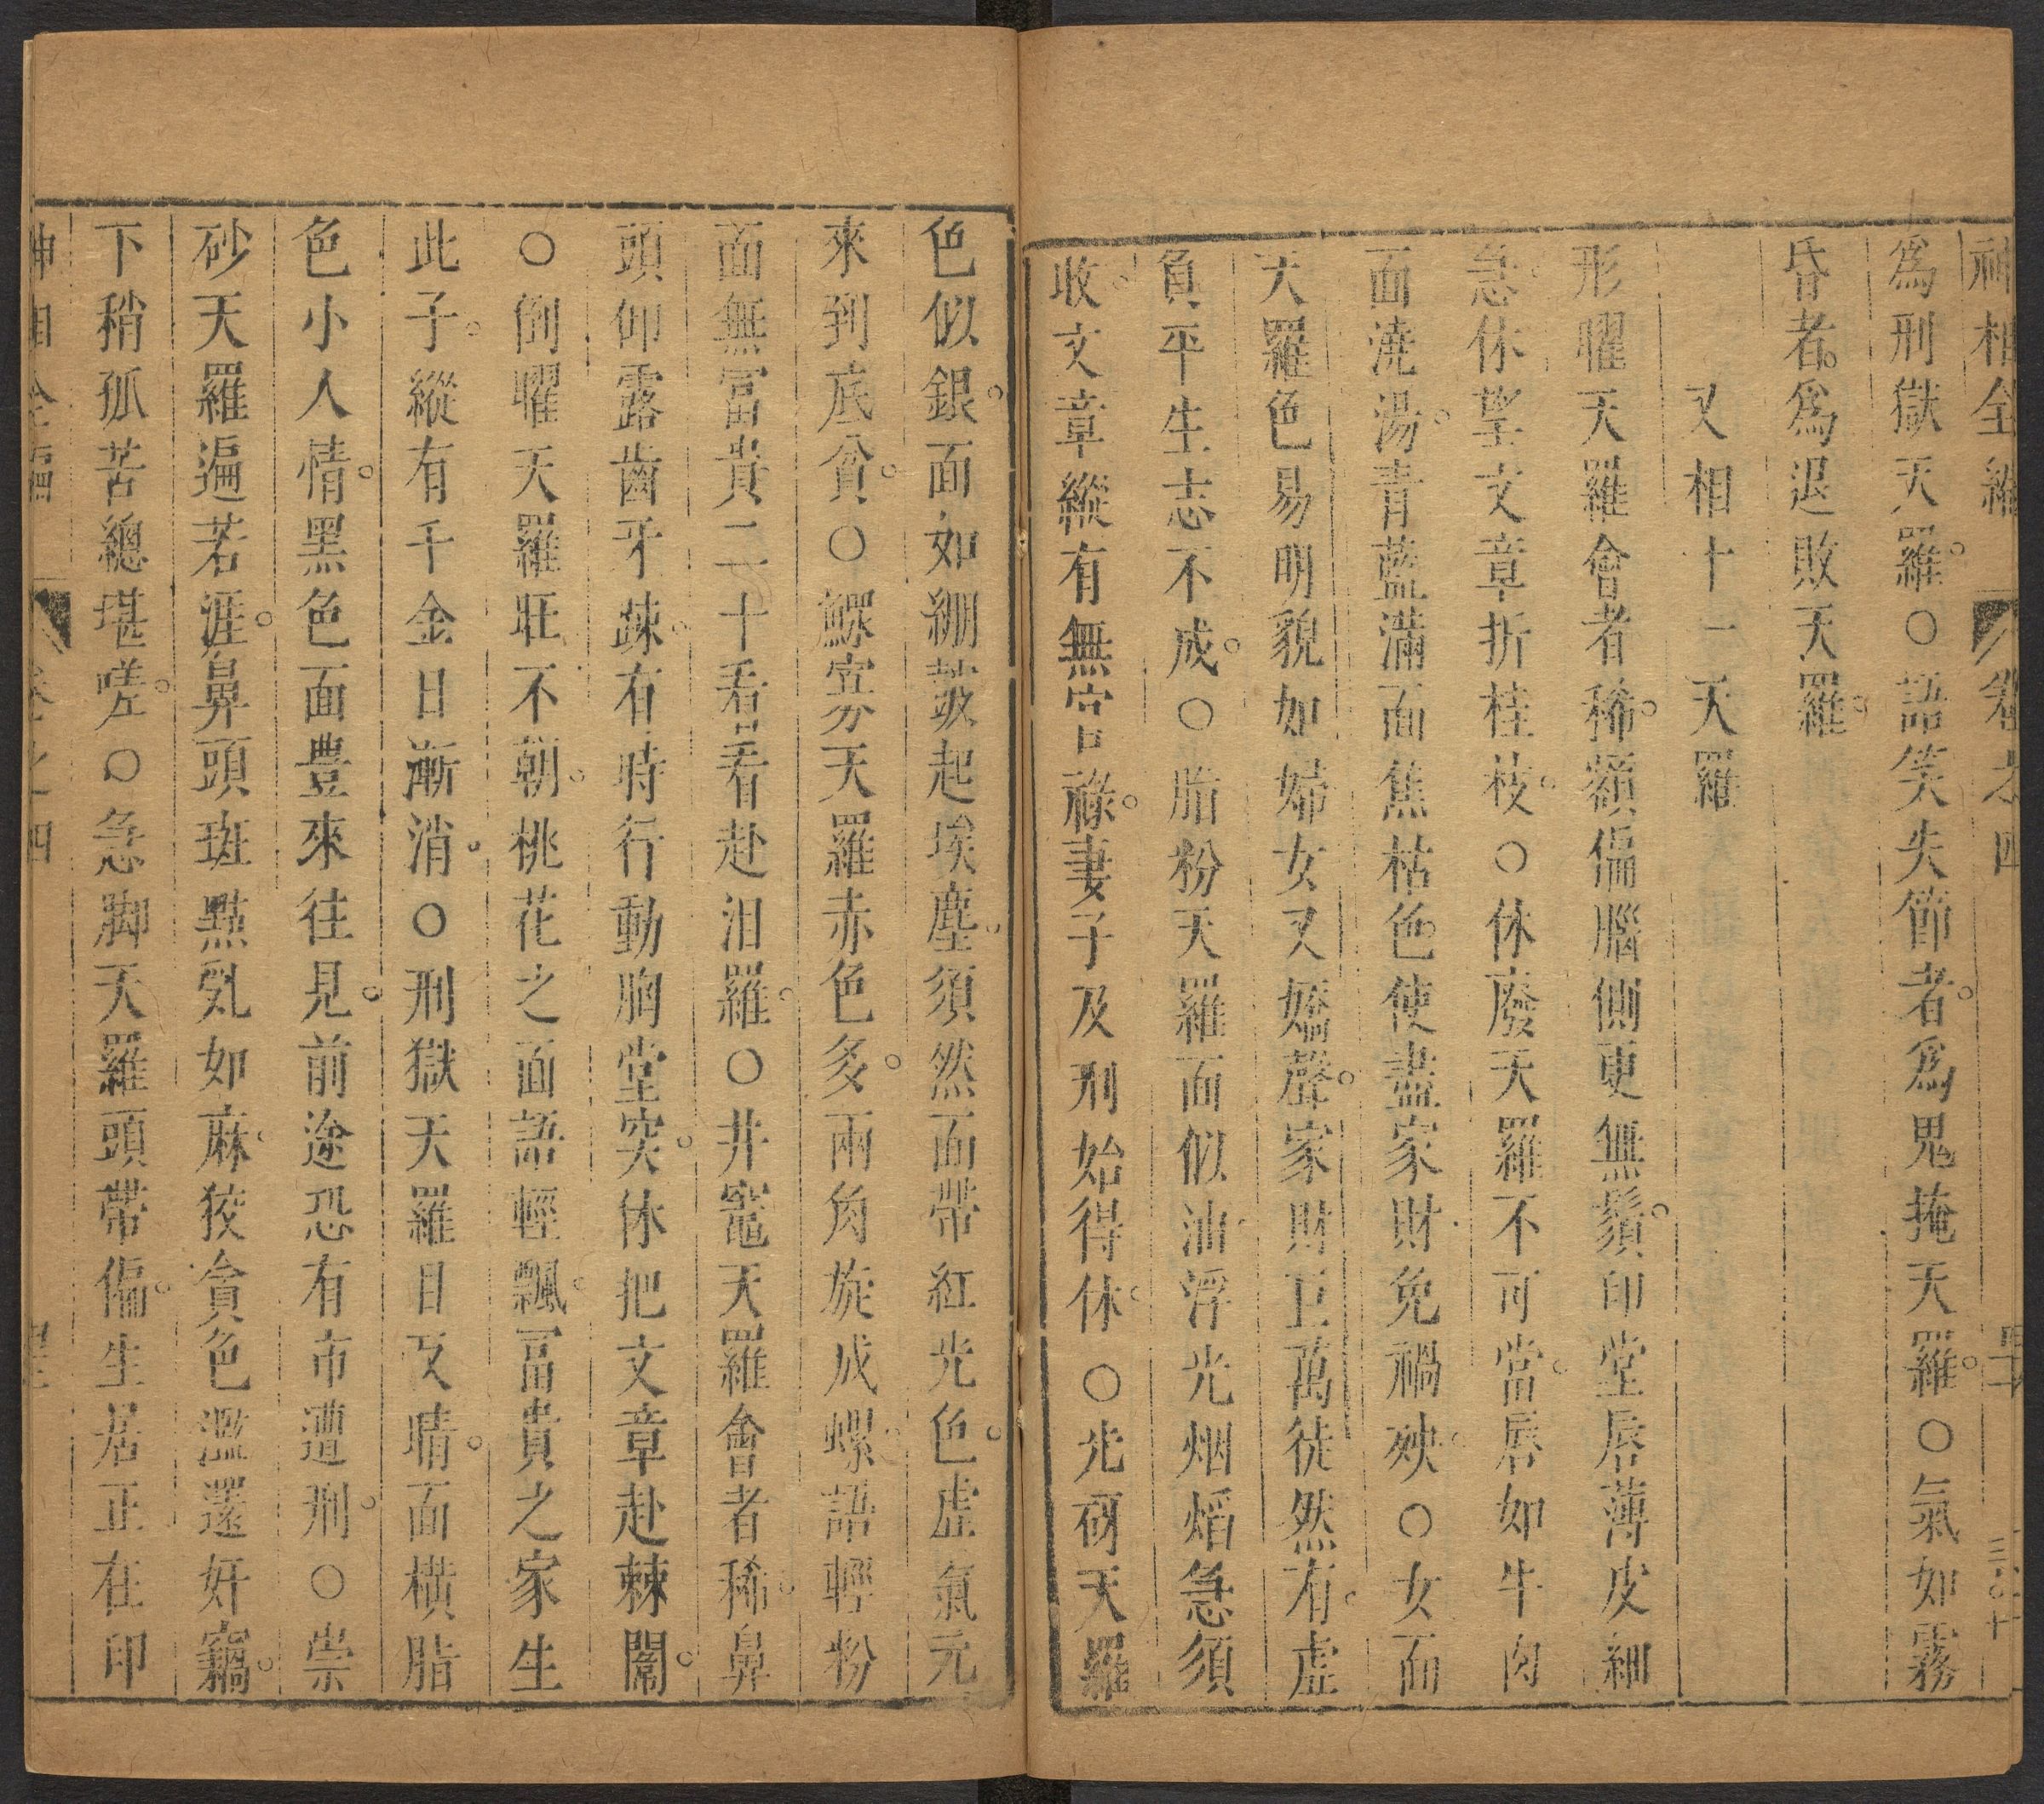 神相全編 卷之四
為刑獄天羅。○語笑失節者。為鬼掩天羅。○氣如霧
昏者。為退敗天羅。
又相十一天羅
形曜天羅會者稀。額偏腦側更無鬚。印堂唇薄皮細
急。休望文章折桂枝。○休廢天羅不可當。唇如牛肉
面澆湯。青藍滿面焦枯色。使盡家財免禍殃。○女面
天羅色易明。貌如婦女又嬌聲。家財巨萬徒然有。虛
負平生志不成。○脂粉天羅面似油。浮光烟熖急須
收。文章縱有無官祿。妻子及刑始得休。○光砑天羅
色似銀。面如綳皷起埃塵。須然面帶紅光色。虛氣元
來到底貧。○鰥寡天羅赤色多。兩角旋成螺。語輕粉
面無冨貴。二十看看赴汨羅。○井竈天羅會者稀。鼻
頭仰露齒牙疎。有時行動胸堂突。休把文章赴棘闈。
○倒曜天羅旺不朝。桃花之面語輕飄。冨貴之家生
此子。縱有千金日漸消。○刑獄天羅目又睛。面橫脂
色小人情。黑色面豊來往見。前途恐有市遭刑。○祟
砂天羅遍若涯。鼻頭斑點乱如麻。狡貪色濫還奸竊。
下稍孤苦總堪嗟。○急脚天羅頭帶偏。生居正在印
神相全編 卷之四